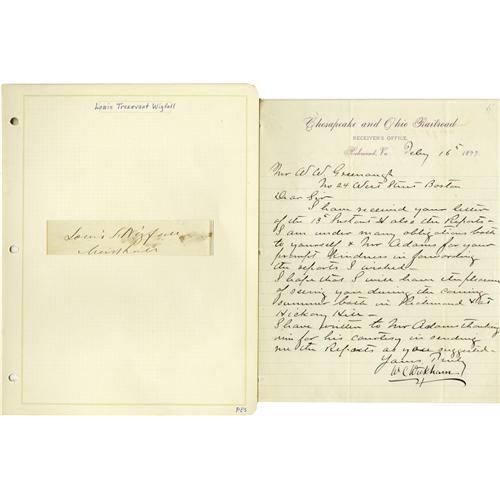 Louis Trezevant Wigfall
Louis T. Wigfall
Marshall
PES
Chesapeake and Ohio Railroad
RECEIVER'S OFFICE.
Richmond, Va. Feby 16" 1877
Mr W. W. Greenough
No 24 West Street Boston
Dear Sir
I have received your letter
of the 13" Instant & also the Reports—
I am under many obligations both
to yourself & Mr Adams for your
prompt kindness in forwarding
the reports I wished—
I hope that I will have the pleasure
of seeing you during the coming
summer both in Richmond & at
Hickory Hill—
I have written to Mr Adams thanking
him for his courtesy in sending
me the Reports as you suggested—
Yours Truly
W C Wickham